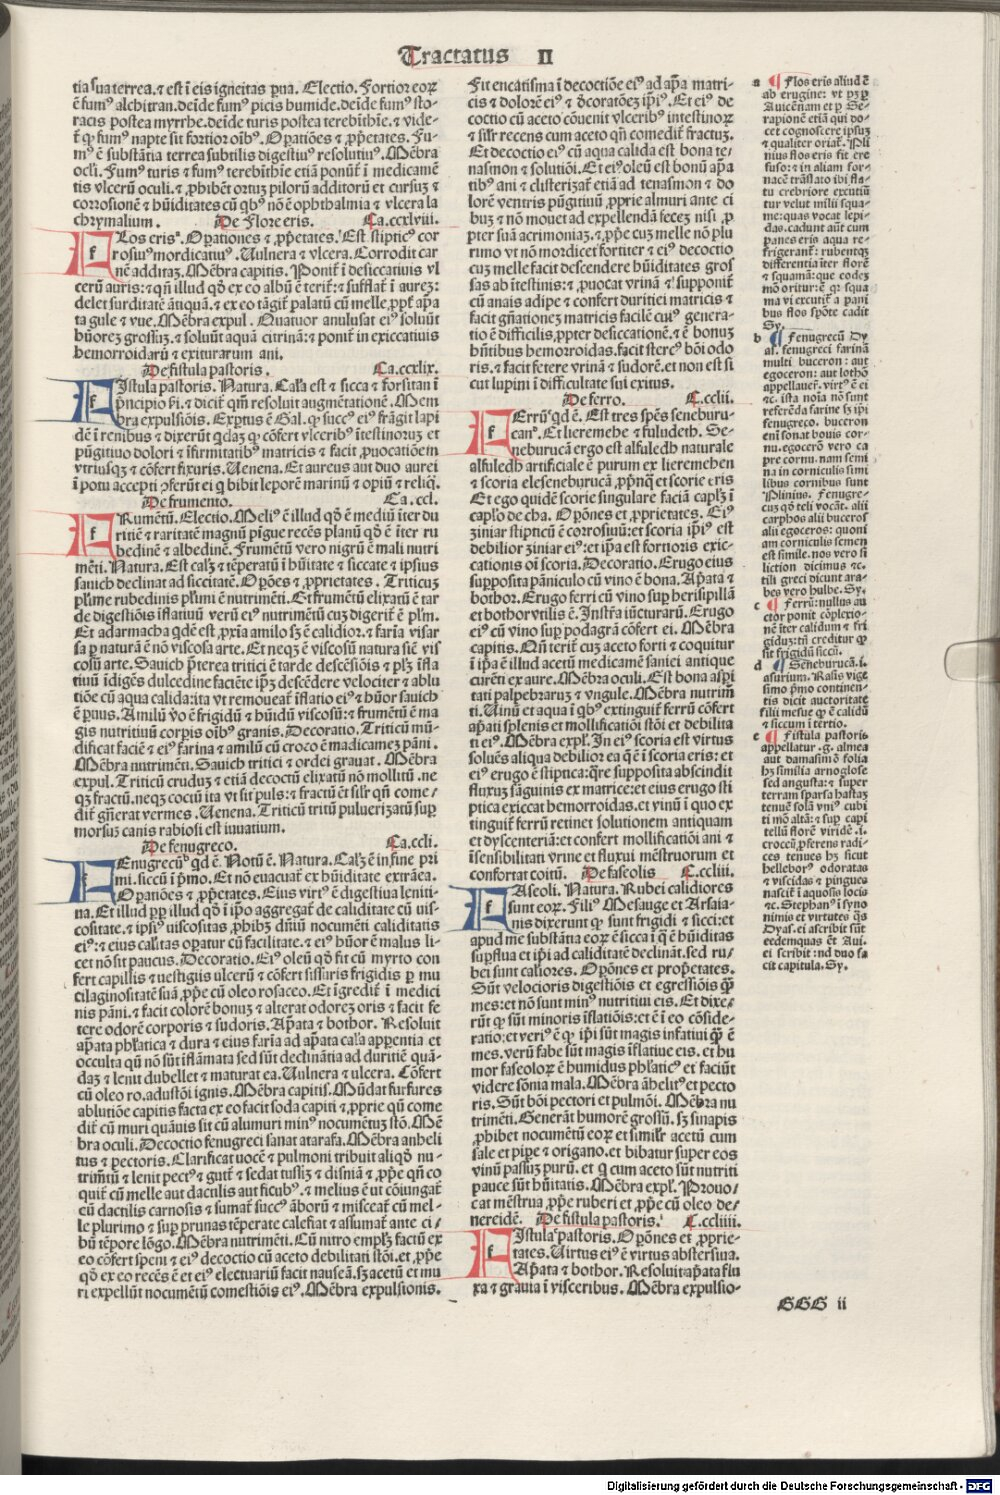 Tractatus II
tia sua terrea. ⁊ est ī eis igneitas ꝑua. Electio. Fortior eoꝝ
ē fumꝰ alchitran. deīde fumꝰ picis humide. deīde fumꝰ sto-
racis postea myrrhe. deīde turis postea terebīthīe. ⁊ vide-
t᷑ ꝙ fumꝰ napte sit fortior oībꝰ. Oꝑatiōes ⁊ ꝓpetates. Fu-
mꝰ ē substātia terrea subtilis digestiuꝰ resolutiuꝰ. Mēbra
ocli. Fumꝰ turis ⁊ fumꝰ terebīthīe etiā ponūt᷑ ī medicamē
tis vlcerū oculi. ⁊ ꝓhibēt ortuꝫ pilorū additorū et cursuꝫ ⁊
corrosionē ⁊ hūiditates cū qbꝰ nō ē ophthalmia ⁊ vlcera la
chrymalium. De Flore eris. Ca. ccxlviii.
FLos erisᵃ. Oꝑationes ⁊ ꝓpetates. Est stipticꝰ cor
rosiuꝰ mordicatiuꝰ. Uulnera ⁊ vlcera. Corrodit car
nē additaꝫ. Mēbra capitis. Ponit᷑ ī desiccatiuis vl
cerū auris: ⁊ qn̄ illud qd̄ ex eo albū ē terit᷑: ⁊ sufflat᷑ ī aureꝫ:
delet surditatē ātiquā. ⁊ ex eo tāgit᷑ palatū cū melle. ꝓpt᷑ apa
ta gule ⁊ vue. Mēbra expul. Quatuor anulusat eiꝰ soluūt
hūoreꝫ grossuꝫ. ⁊ soluūt aquā citrinā: ⁊ ponit᷑ in exiccatiuis
hemorroidarū ⁊ exiturarum ani.
De fistula pastoris. Ca. ccxlix.
FIstula pastoris. Natura. Cala est ⁊ sicca ⁊ forsitan ī
pncipio ṗi. ⁊ dicit᷑ qm̄ resoluit augmētationē. Mem
bra expulsiōis. Exꝑtus ē Gal. ꝙ succꝰ eiꝰ frāgit lapi
dē ī renibus ⁊ dixerūt qdaꝫ ꝙ cōfert vlceribꝰ ītestinoruꝫ et
pūgitiuo dolori ⁊ īfirmitatibꝰ matricis ⁊ facit ꝓuocatiōeīn
vtriusqꝫ ⁊ cōfert fixuris. Uenena. Et aureus aut duo aurei
ī potu accepti ꝯferūt ei q bibit leporē marinū ⁊ opiū ⁊ reliq.
De frumento. Ca. ccl.
FRumētū. Electio. Meliꝰ ē illud qd̄ ē mediū īter du
ritiē ⁊ raritatē magnū pīgue recēs planū qd̄ ē īter ru
bedinē ⁊ albedinē. Frumētū vero nigrū ē mali nutri
mēti. Natura. Est calꝫ ⁊ tēperatū ī hūitate ⁊ siccate ⁊ ipsius
sauich declinat ad siccitatē. Oꝑōes ⁊ ꝓprietates. Triticuꝫ
plīme rubedinis plīmi ē nutrimēti. Et frumētū elixatū ē tar
de digestiōis īflatiuū verū eiꝰ nutrimētū cuꝫ digerit᷑ ē plm̄.
Et adarmacha qdē est ꝓxīa amilo sꝫ ē calidior. ⁊ farīa visar
sa ꝑ naturā ē nō viscosa arte. Et neqꝫ ē viscosū natura siē vis
cosū arte. Sauich pterea tritici ē tarde descēsiōis ⁊ plꝫ īfla
tiuū īdigēs dulcedine faciēte ipꝫ descēdere velociter ⁊ ablu
tiōe cū aqua calida: ita vt remoueat᷑ īflatio eiꝰ ⁊ hūor sauich
ē ꝑuus. Amilū v̄o ē frigidū ⁊ hūidū viscosū: ⁊ frumētū ē ma
gis nutritiuū corpis oībꝰ granis. Decoratio. Triticū mū-
dificat faciē ⁊ eiꝰ farina ⁊ amilū cū croco ē madicameꝫ pāni.
Mēbra nutrimēti. Sauich tritici ⁊ ordei grauat. Mēbra
expul. Triticū cruduꝫ ⁊ etiā decoctū elixatū nō mollitū. ne
qꝫ fractū. neqꝫ coctū ita vt sit puls: ⁊ fractū ⁊ silr qn̄ come/
dit᷑ gn̄erat vermes. Uenena. Triticū tritū pulueriꝫatū suꝑ
morsuꝫ canis rabiosi est iuuatium.
De fenugreco. Ca. ccli.
FEnugrecūᵇ qd ē. Notū ē. Natura. Calꝫ ē in fine pri
mi. siccū ī pmo. Et nō euacuat᷑ ex hūiditate extrāea.
Oꝑatiōes ⁊ ꝓpetates. Eius virtꝰ ē digestiua leniti-
ua. Et illud ꝓp illud qd̄ ī ipo aggregat᷑ de caliditate cū vis-
cositate. ⁊ ipsiꝰ viscositas ꝓhibꝫ dn̄iū nocumēti caliditatis
eiꝰ: ⁊ eius calitas oꝑatur cū facilitate. ⁊ eiꝰ hūor ē malus li-
cet nō sit paucus. Decoratio. Eiꝰ oleū qd̄ fit cū myrto con
fert capillis ⁊ vestigiis vlcerū ⁊ cōfert fissuris frigidis ꝑ mu
cilaginositatē suā ꝓpe cū oleo rosaceo. Et īgredit᷑ ī medici
nis pāni. ⁊ facit colorē bonuꝫ ⁊ alterat odoreꝫ oris ⁊ facit fe
tere odorē corporis ⁊ sudoris. Apata ⁊ bothor. Resoluit
apata phlatica ⁊ dura ⁊ eius farīa ad apata cala apparentia et
occulta qn̄ nō sūt īflāmata sed sūt declinātia ad duritiē quā-
daꝫ ⁊ lenit dubellet ⁊ maturat ea. Uulnera ⁊ ulcera. Cōfert
cū oleo ro. adustōi ignis. Mēbra capitis. Mūdat furfures
ablutiōe capitis facta ex eo facit soda capiti ⁊ ꝓprie qn̄ come
dit᷑ cū muri quāuis sit cū alumuri minꝰ nocumētuꝫ stō. Mē
bra oculi. Decoctio fenugreci sanat atarafa. Mēbra anheli
tus ⁊ pectoris. Clarificat uocē ⁊ pulmoni tribuit aliqd̄ nu-
trimtū ⁊ lenit pectꝰ ⁊ gutt᷑ ⁊ sedat tussiꝫ ⁊ disniā ⁊ ꝓpe qn̄ co
quit᷑ cū melle aut dactulis aut ficubꝰ. ⁊ melius ē ut cōiungat᷑
cū dactilis carnosis ⁊ sumat᷑ succꝰ āborū ⁊ misceat᷑ cū mel-
le plurimo ⁊ suꝑ prunas tēperate calefiat ⁊ assumat᷑ ante ci/
bū tēpore lōgo. Mēbra nutrimēti. Cū nitro emplꝫ factū ex
eo cōfert spleni ⁊ eiꝰ decoctio cū aceto debilitati stōi. et ꝓpe
qd̄ ex eo recēs ē et eiꝰ electuariū facit nauseā. sꝫ acetū et mu
ri expellūt nocumētū comestiōis eiꝰ. Mēbra expulsionis.
Fit encatisma ī decoctiōe eiꝰ ad apa matri-
cis ⁊ dolorē eiꝰ ⁊ ꝺcoratōeꝫ ipiꝰ. Et eiꝰ de
coctio cū aceto cōuenit vlceribꝰ intestinoꝝ
⁊ silr recens cum aceto qn̄ comedit᷑ fractuꝫ.
Et decoctio eiꝰ cū aqua calida est bona te/
nasmon ⁊ solutiōi. Et eiꝰ oleū est bonū apa
tibꝰ ani ⁊ clisteriꝫat᷑ etiā ad tenasmon ⁊ do
lorē ventris pūgitiuū ꝓprie almuri ante ci
buꝫ ⁊ nō mouet ad expellendā feceꝫ nisi ꝓ
pter suā acrimoniaꝫ. ⁊ ꝓpe cuꝫ melle nō plu
rimo vt nō mordicet fortiter ⁊ eiꝰ decoctio
cuꝫ melle facit descendere hūiditates gros
sas ab ītestinis: ⁊ ꝓuocat vrinā ⁊ supponit᷑
cū anais adipe ⁊ confert duritiei matricis ⁊
facit gn̄ationeꝫ matricis facilē cuiꝰ genera-
tio ē difficilis ꝓpter desiccationē. ⁊ ē bonuꝫ
hn̄tibus hemorroidas. facit stercꝰ bōi odo
ris. ⁊ facit fetere vrinā ⁊ sudorē. et non est si
cut lupini ī difficultate sui exitus.
De ferro. C. cclii.
FErrūᶜ qd ē. Est tres spēs seneburu-
canᵈ. Et lieremehe ⁊ fuludeth. Se-
neburucā ergo est alfuledh naturale
alfuledh artificiale ē purum ex lieremehen
⁊ scoria eleseneburucā. ꝓpnqꝫ et scorie eris
Et ego quidē scorie singulare faciā caplꝫ ī
caplo de cha. Oꝑōnes et ꝓprietates. Eiꝰ
ziniar stipticū ē corrosiuū: et scoria ipiꝰ est
debilior ziniar eiꝰ: et ipa est fortioris exic-
cationis oī scoria. Decoratio. Erugo eius
supposita pāniculo cū vino ē bona. Apata ⁊
bothor. Erugo ferri cū vino suꝑ herisipillā
et bothor vtilis ē. Instra iūcturarū. Erugo
eiꝰ cū vino suꝑ podagrā cōfert ei. Mēbra
capitis. Qn̄ terit᷑ cuꝫ aceto forti ⁊ coquitur
ī ipa ē illud acetū medicamē saniei antique
curēti ex aure. Mēbra oculi. Est bona aspi
tati palpebraruꝫ ⁊ vngule. Mēbra nutrim
ti. Uinū et aqua ī qbꝰ extinguit᷑ ferrū cōfert
apati splenis et mollificatiōi stōi et debilita
ti eiꝰ. Mēbra expl. In eiꝰ scoria est virtus
soluēs aliqua debilior ea q̄ ē ī scoria eris: et
eiꝰ erugo ē stiptica: qre supposita abscindit
fluxuꝫ sāguinis ex matrice: et eius erugo sti
ptica exiccat hemorroidas. et vinū ī quo ex
tinguit᷑ ferrū retinet solutionem antiquam
et dyscenteriā: et confert mollificatiōi ani ⁊
īsensibilitati vrine et fluxui mēstruorum et
confortat coitū. De faseolis C. ccliii.
FAseoli. Natura. Rubei calidiores
sunt eoꝝ. Filiꝰ Mesauge et Arsaia-
nis dixerunt ꝙ sunt frigidi ⁊ sicci: et
apud me substātia eoꝝ ē sicca ī q̄ ē hūiditas
suꝑflua et ipi ad caliditatē declināt. sed ru/
bei sunt caliores. Oꝑōnes et proꝑetates.
Sūt velocioris digestiōis et egressiōis qm̄
mes: et nō sunt minꝰ nutritiui eis. Et dixe/
rūt ꝙ sūt minoris īflatiōis: et ē ī eo cōside-
ratio: et veriꝰ ē ꝙ ipi sūt magis infatiui qm̄ ē
mes. verū fabe sūt magis īflatiue eis. et hu
mor faseoloꝝ ē humidus phlaticꝰ et faciūt
videre sōnia mala. Mēbra āhelitꝰ et pecto
ris. Sūt bōi pectori et pulmōi. Mēbra nu
trimēti. Generāt humorē grossū. sꝫ sinapis
ꝓhibet nocumētū eoꝝ et similr acetū cum
sale et pipe ⁊ origano. et bibatur super eos
vinū passuꝫ purū. et q cum aceto sūt nutriti
pauce sūt hūitatis. Mēbra expl. Prouo/
cat mēstrua ꝓpe ruberi et ꝓpe cū oleo de/
nereidē. De fistula pastoris. C. ccliiii.
FIstulaᵉ pastoris. Oꝑōnes et ꝓprie-
tates. Uirtus eiꝰ ē virtus abstersiua.
Apata ⁊ bothor. Resoluit apata flu
xa ⁊ grauia ī visceribus. Mēbra expulsio-
a ¶ Flos eris aliud ē
ab erugine: vt pꝫ ꝑ
Auicēnam et ꝑ Se-
rapionē etiā qui do-
cet cognoscere ipsuꝫ
⁊ qualiter oriat᷑. Pli
nius flos eris fit ere
fuso: ⁊ in aliam for-
nacē trāslato ibi fla-
tu crebriore excutiū
tur velut milii squa-
me: quas vocāt lepi-
das. cadunt aūt cum
panes eris aqua re-
frigerant᷑: rubentqꝫ
differentia īter florē
⁊ squamā: que eodeꝫ
mō oritur: ē ꝙ squa
ma vi excutit᷑ a pani
bus flos spōte cadit
Sy.
b ¶ Fenugrecū Dy
as. fenugreci farinā
multi buceron: aut
egoceron: aut lothō
appellauer̄. virtꝰ ē ei
⁊c. ista noīa nō sunt
referēda farine sꝫ ipi
fenugreco. buceron
eni sonat bouis cor-
nu. egocerō vero ca
pre cornu. nam semi
na in corniculis simi
libus cornibus sunt
Plinius. Fenugre-
cuꝫ qd̄ teli vocāt. alii
carphos alii buceros
alii egoceros: quoni
am corniculis semen
est simile. nos vero si
liction dicimus ⁊c.
tili greci dicunt ara-
bes vero hulbe. Sy.
c ¶ Ferrū: nullus au
ctor ponit cōplexio-
nē īter calidum ⁊ fri
giduꝫ: tn̄ creditur ꝙ
sit frigidū siccū.
d ¶ Seneburucā. i.
asurium. Rasis vige
simo pmo continen-
tis dicit auctoritate
filii mesue ꝙ ē calidū
⁊ siccum ī tertio.
e ¶ Fistula pastoris
appellatur .g. almea
aut damasimō folia
hꝫ similia arnoglose
sed angusta: ⁊ super
terram sparsa hastaꝫ
tenuē solā vniꝰ cubi
ti mō altā: ⁊ suꝑ capi
tellū florē viridē .i.
croceū ꝓferens radi-
ces tenues hꝫ sicut
helleborꝰ odoratas
⁊ viscidas ⁊ pingues
nascit᷑ ī aquosis locis
⁊c. Stephanꝰ ī syno
nimis et virtutes qs
Dyas. ei ascribit sūt
eedemquas ēt Aui.
ei scribit: nd duo fa
cit capitula. Sy.
GGG ii
Digitalisierung gefördert durch die Deutsche Forschungsgemeinschaft - DFG